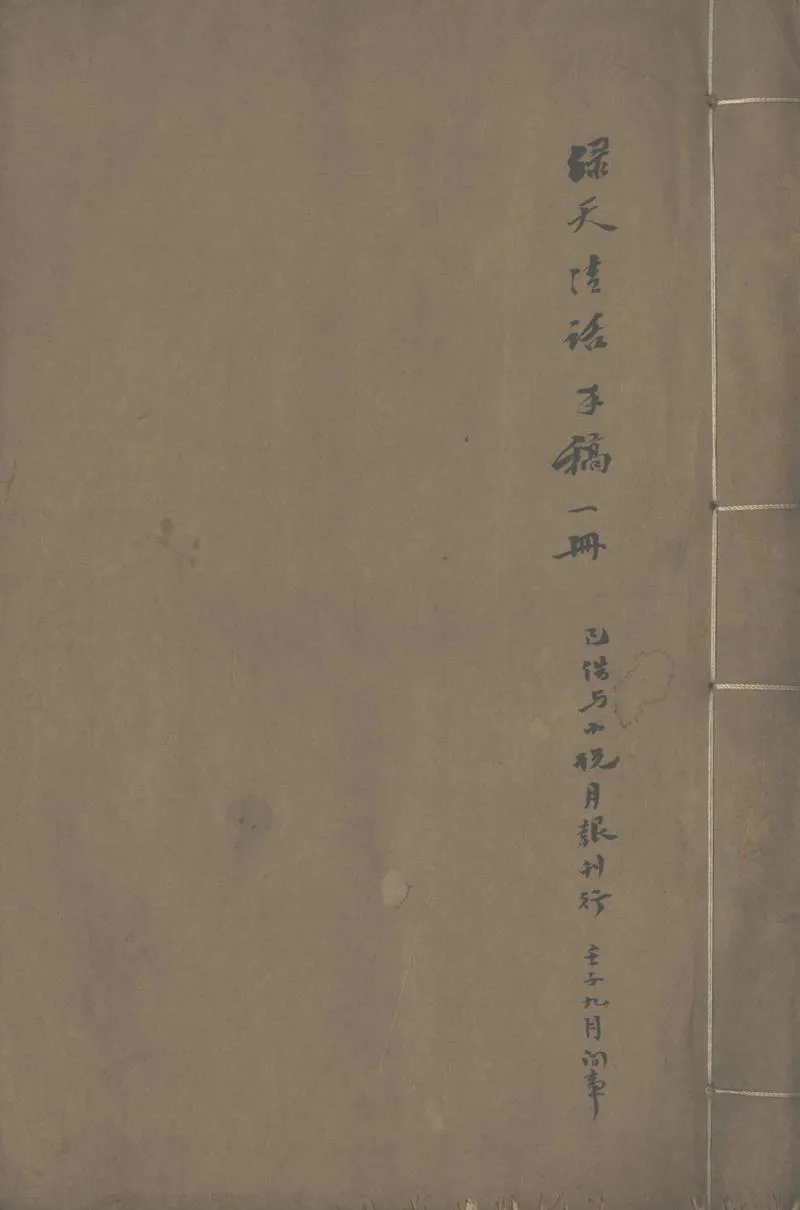 綠天清話手稿一冊 已借与小說月報刊行 壬子九月間事